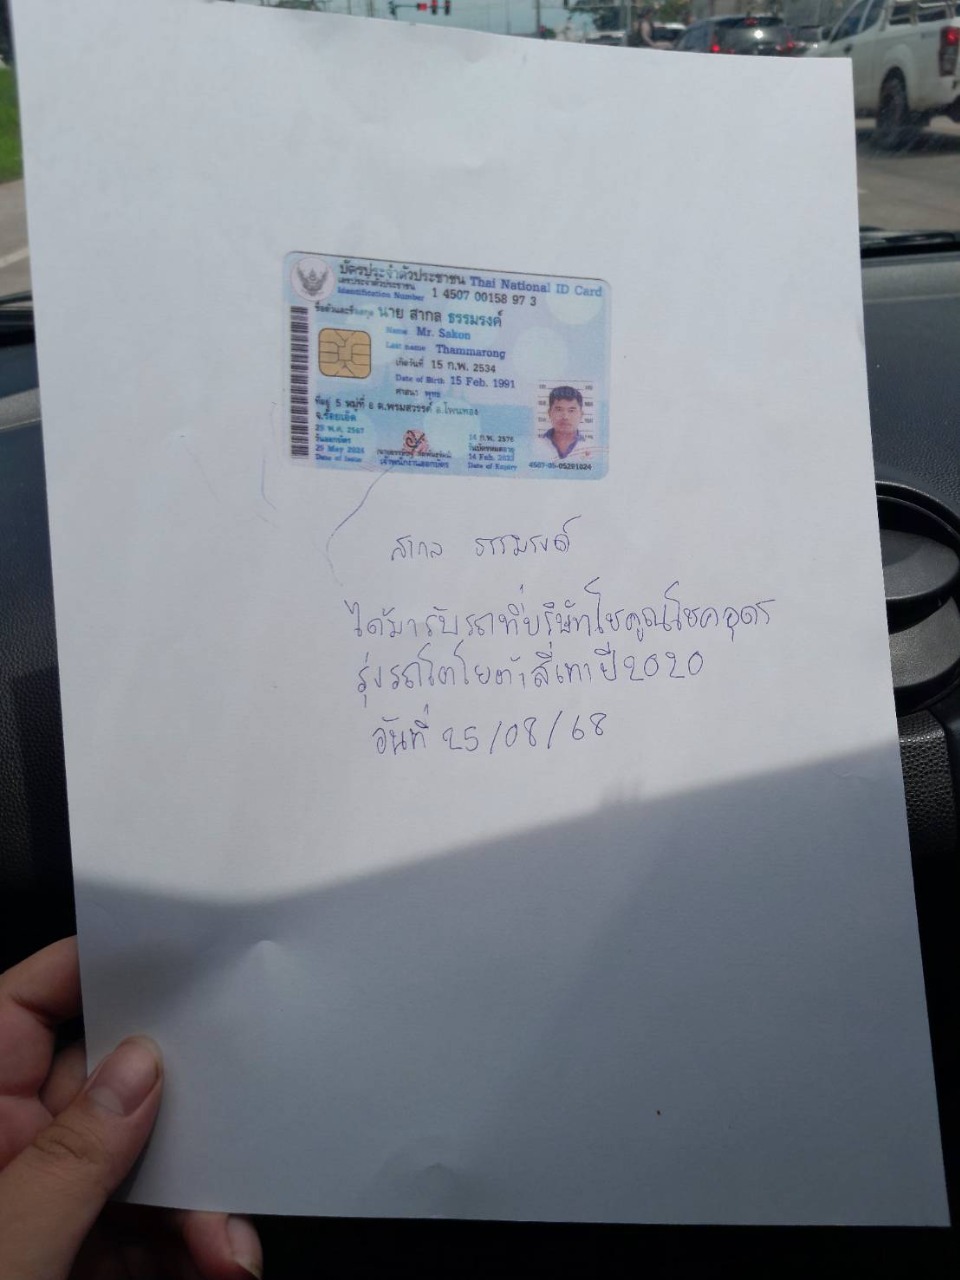 บัตรประจำตัวประชาชน Thai National ID Card
เลขประจำตัวประชาชน
Identification Number 1 4507 00158 97 3
ชื่อตัวและชื่อสกุล นาย สากล ธรรมรงค์
Name Mr. Sakon
Last name Thammarong
เกิดวันที่ 15 ก.พ. 2534
Date of Birth 15 Feb. 1991
ศาสนา พุทธ
ที่อยู่ 5 หมู่ที่ 6 ต.พรมสวรรค์ อ.โพนทอง
จ.ร้อยเอ็ด
วันออกบัตร
Date of Issue
เจ้าพนักงานออกบัตร
14 ก.พ. 2576
วันบัตรหมดอายุ
14 Feb. 2033
Date of Expiry
4507-05-05291024
สากล ธรรมรงค์
ได้มารับรถที่บริษัทโชคูณโชคอุดร
รุ่งรถโตโยต้าสีเทาปี 2020
วันที่ 25/08/68